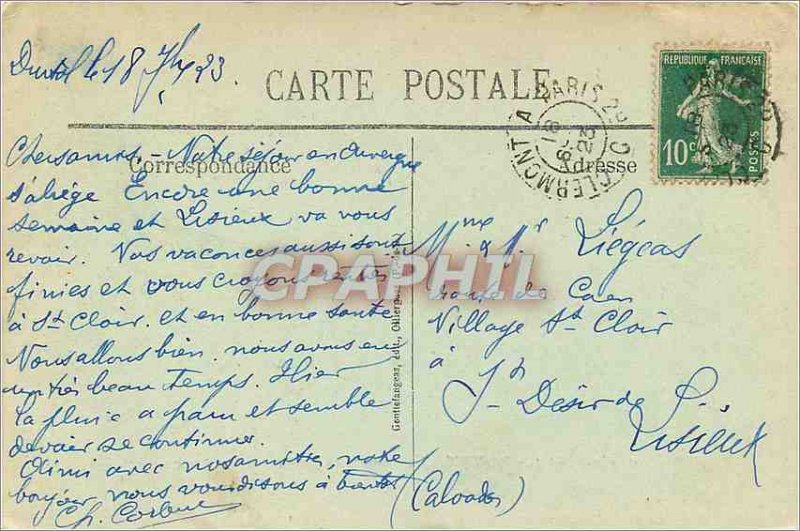 le 18 7bre 23.
CARTE POSTALE
Correspondance
Adresse
Chers amis, - Notre séjour en Auvergne
s'abrège Encore une bonne
semaine et Lisieux va vous
revoir. Vos vacances aussi sont
finies et vous croyons rentrés
à St Clair. et en bonne santé
Nous allons bien. nous avons eu
un très beau temps. Hier
la pluie a paru et semble
devoir se continuer.
Ainsi avec nos amitiés, notre
bonjour, nous vous disons à bientôt
Ch. Corbu
Mme & Mr Liégeas
route de Caen
Village St Clair
à
St Désir de L.
Lisieux
(Calvados)
Gentilfangeas, édit., Olliergues
CLERMONT A PARIS 2°
18 -9 23
REPUBLIQUE FRANÇAISE
10c
POSTES
CPAPHIL